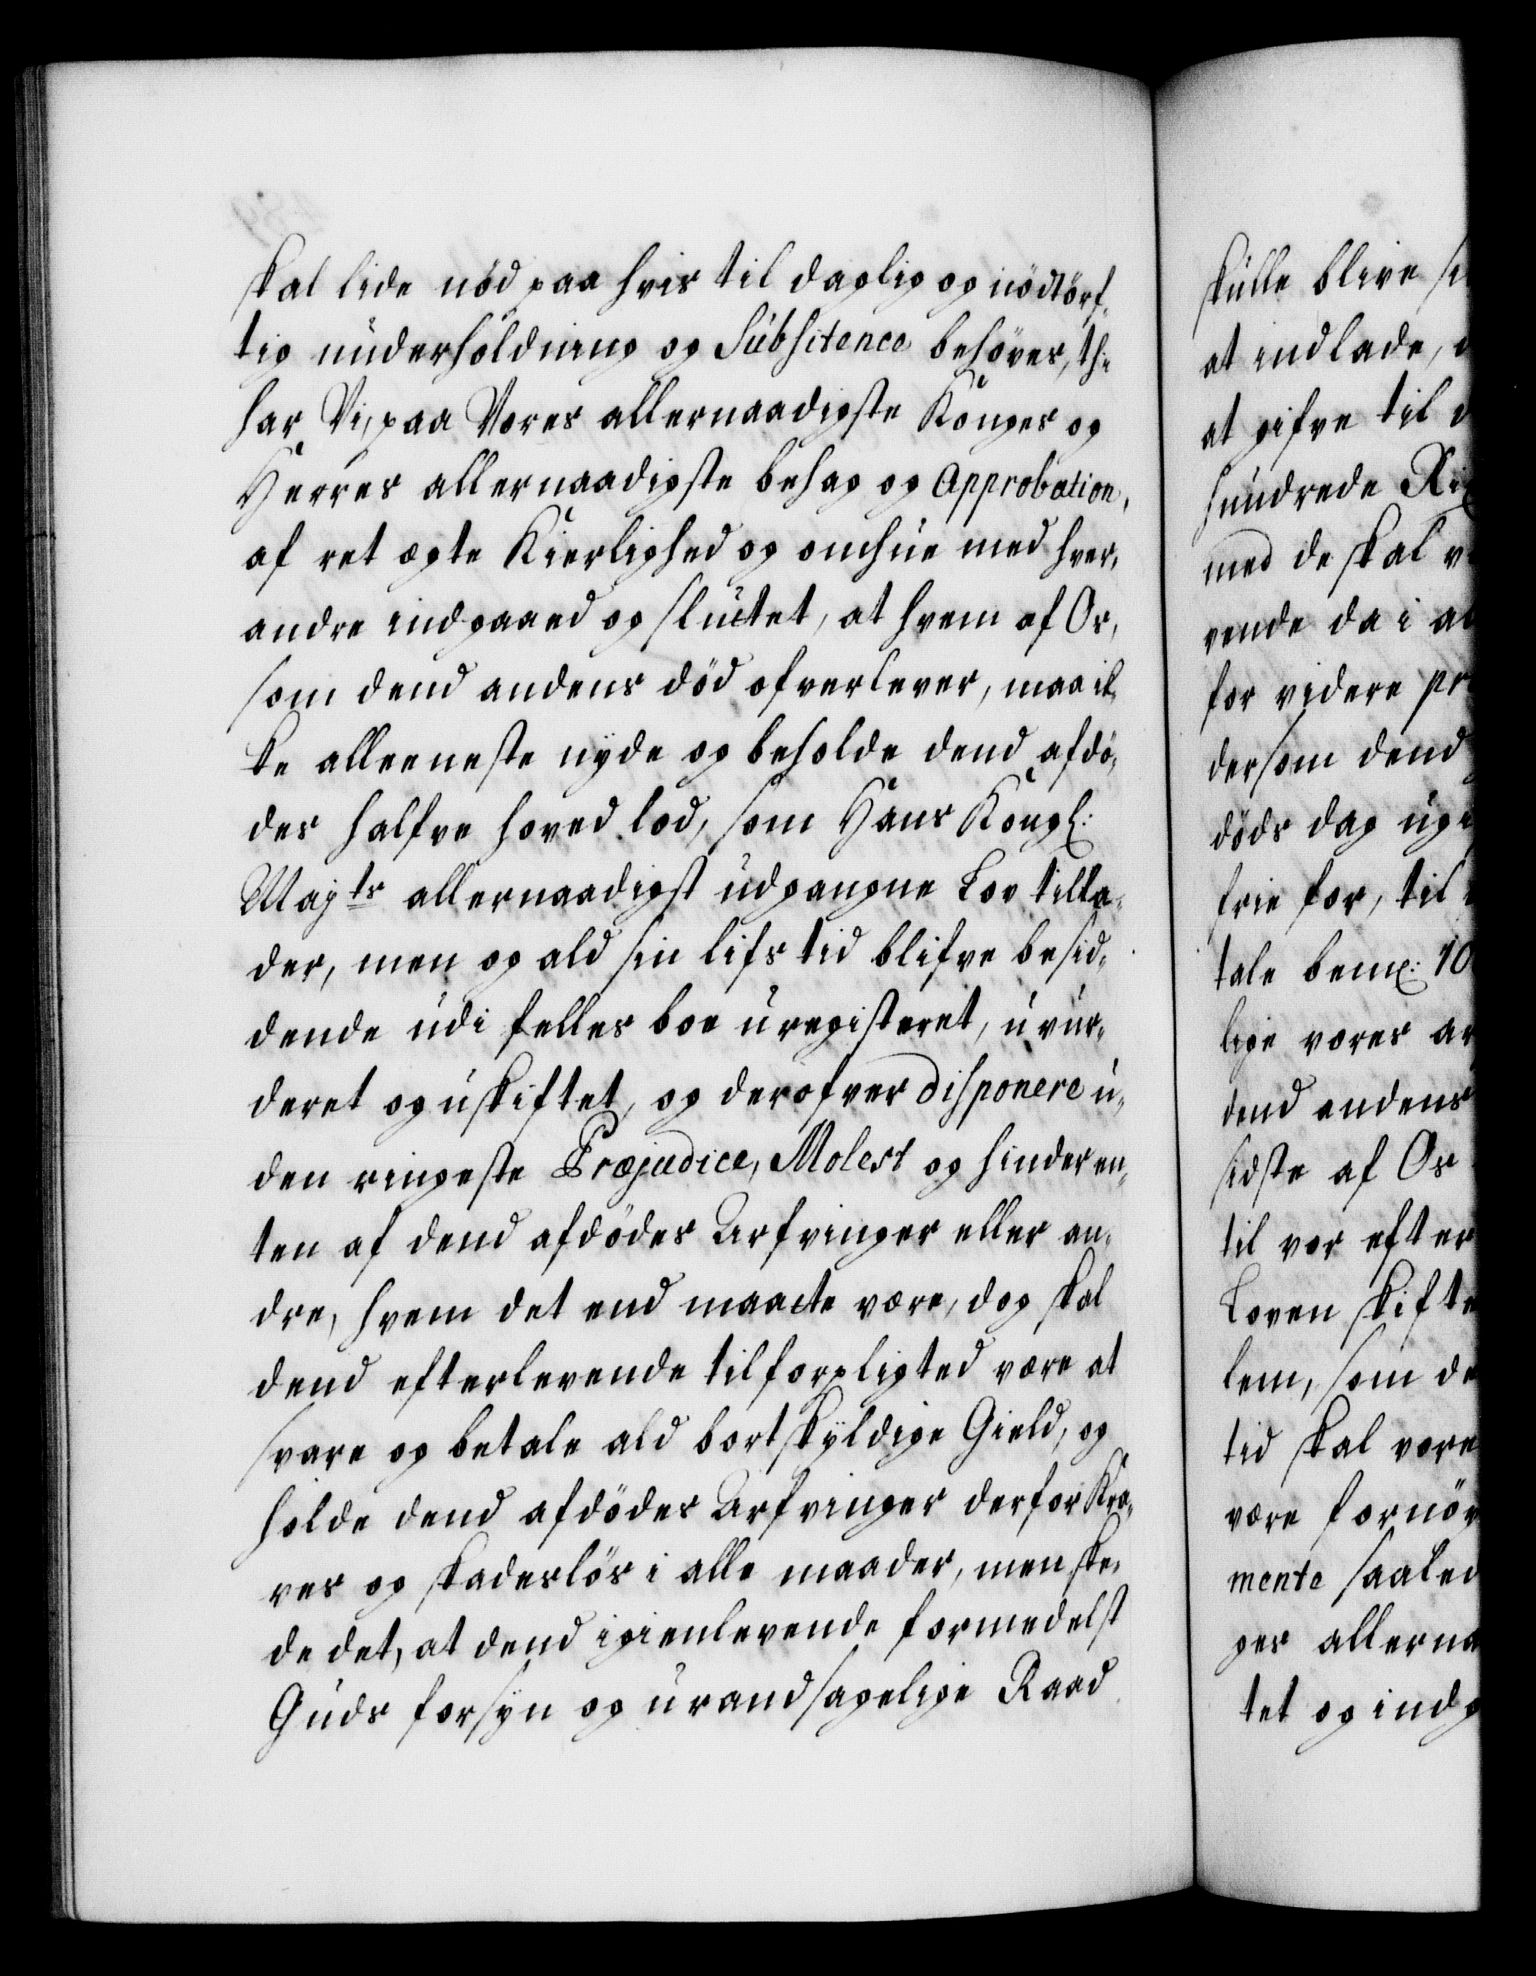 skal lide nöd paa hvis til daglig og nödtörf„
tig underholdning og Subsitence behöver, thi
har Vi, paa Vores allernaadigste Konges og
Herres allernaadigste behag og Approbation,
af ret ægte Kierlighed og omhue med hver„
andre indgaaed og sluttet, at hvem af Os,
som dend andens död ofverlever, maa ik„
ke alleeneste nyde og beholde dend afdö„
des halfve hoved lod, som Hans Kongl:
Majts allernaadigst udgangne Lov tilla„
der, men og ald sin lifs tid blifve besid„
dende udi felles boe uregisteret, uvur„
deret og uskiftet, og derofver disponere u„
den ringeste Præjudice, Molest og hinder en„
ten af dend afdödes Arfvinger eller an„
dre, hvem det end maatte være, dog skal
dend efterlevende tilforpligted være at
svare og betale ald bortskyldige Gield, og
holde dend afdödes Arfvinger derfor Kra„
ves og skadeslös i alle maader, men ske„
de det, at dend igienlevende formedelst
Guds forsyn og urandsagelige Raad
skulle blive si
at indlade,
at gifve til d
hundrede Rix
med de skal v
vende da i al
for videre pr
dersom dend
döds dag ugi
frie for, til
tale bemt: 10
lige vores ar
dend andens
sidste af Os
til vor efter
Loven skifte
lem, som de
tid skal være
være fornöy
mente saaled
ges allerna
tet og indg